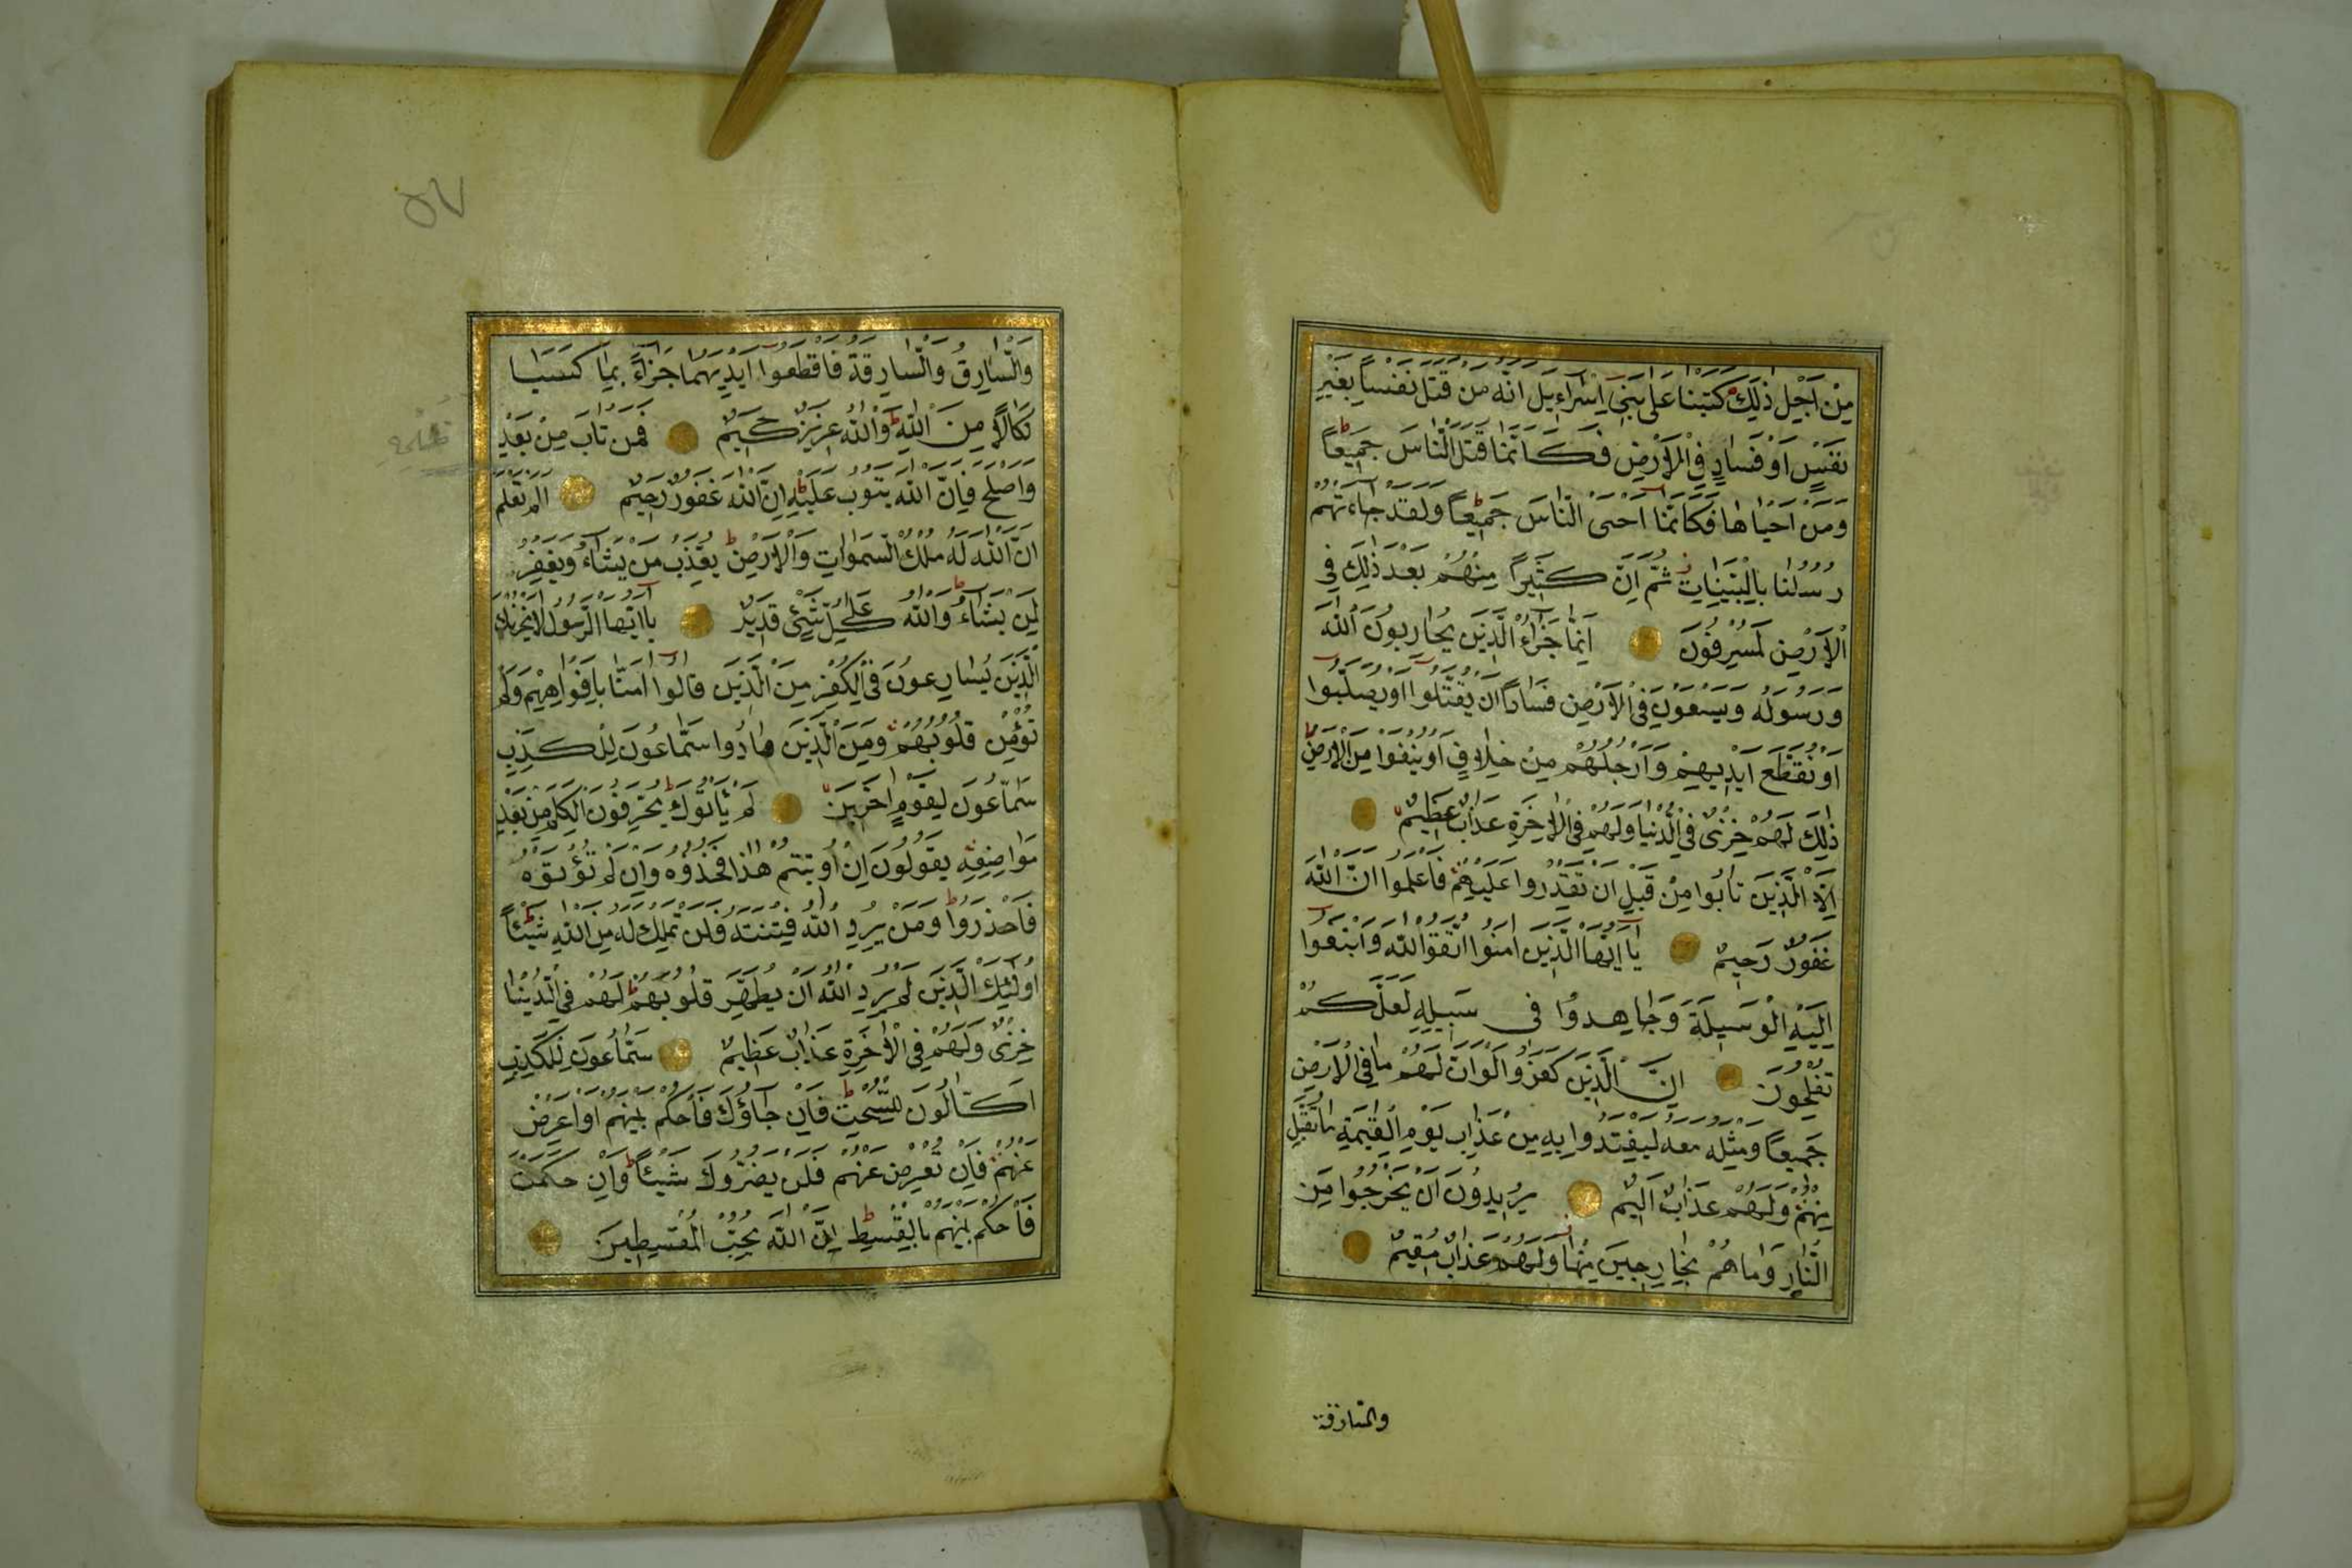 مِنْ اَجْلِ ذٰلِكَ كَتَبْنَا عَلٰى بَنٖى اِسْرَاءٖيلَ اَنَّهُ مَنْ قَتَلَ نَفْسًا بِغَيْرِ
نَفْسٍ اَوْ فَسَادٍ فِى الْاَرْضِ فَكَاَنَّمَا قَتَلَ النَّاسَ جَمٖيعًا
وَمَنْ اَحْيَاهَا فَكَاَنَّمَا اَحْيَى النَّاسَ جَمٖيعًا وَلَقَدْ جَاءَتْهُمْ
رُسُلُنَا بِالْبَيِّنَاتِ ثُمَّ اِنَّ كَثٖيرًا مِنْهُمْ بَعْدَ ذٰلِكَ فِى
الْاَرْضِ لَمُسْرِفُونَ اِنَّمَا جَزَاءُ الَّذٖينَ يُحَارِبُونَ اللّٰهَ
وَرَسُولَهُ وَيَسْعَوْنَ فِى الْاَرْضِ فَسَادًا اَنْ يُقَتَّلُوا اَوْ يُصَلَّبُوا
اَوْ تُقَطَّعَ اَيْدٖيهِمْ وَاَرْجُلُهُمْ مِنْ خِلَافٍ اَوْ يُنْفَوْا مِنَ الْاَرْضِ
ذٰلِكَ لَهُمْ خِزْىٌ فِى الدُّنْيَا وَلَهُمْ فِى الْاٰخِرَةِ عَذَابٌ عَظٖيمٌ
اِلَّا الَّذٖينَ تَابُوا مِنْ قَبْلِ اَنْ تَقْدِرُوا عَلَيْهِمْ فَاعْلَمُوا اَنَّ اللّٰهَ
غَفُورٌ رَحٖيمٌ يَا اَيُّهَا الَّذٖينَ اٰمَنُوا اتَّقُوا اللّٰهَ وَابْتَغُوا
اِلَيْهِ الْوَسٖيلَةَ وَجَاهِدُوا فٖى سَبٖيلِهٖ لَعَلَّكُمْ
تُفْلِحُونَ اِنَّ الَّذٖينَ كَفَرُوا لَوْ اَنَّ لَهُمْ مَا فِى الْاَرْضِ
جَمٖيعًا وَمِثْلَهُ مَعَهُ لِيَفْتَدُوا بِهٖ مِنْ عَذَابِ يَوْمِ الْقِيٰمَةِ مَا تُقُبِّلَ
مِنْهُمْ وَلَهُمْ عَذَابٌ اَلٖيمٌ يُرٖيدُونَ اَنْ يَخْرُجُوا مِنَ
النَّارِ وَمَا هُمْ بِخَارِجٖينَ مِنْهَا وَلَهُمْ عَذَابٌ مُقٖيمٌ
والسارقة
٥٧
وَالسَّارِقُ وَالسَّارِقَةُ فَاقْطَعُوا اَيْدِيَهُمَا جَزَاءً بِمَا كَسَبَا
نَكَالًا مِنَ اللّٰهِ وَاللّٰهُ عَزٖيزٌ حَكٖيمٌ فَمَنْ تَابَ مِنْ بَعْدِ
وَاَصْلَحَ فَاِنَّ اللّٰهَ يَتُوبُ عَلَيْهِ اِنَّ اللّٰهَ غَفُورٌ رَحٖيمٌ اَلَمْ تَعْلَمْ
اَنَّ اللّٰهَ لَهُ مُلْكُ السَّمٰوَاتِ وَالْاَرْضِ يُعَذِّبُ مَنْ يَشَاءُ وَيَغْفِرُ
لِمَنْ يَشَاءُ وَاللّٰهُ عَلٰى كُلِّ شَىْءٍ قَدٖيرٌ يَا اَيُّهَا الرَّسُولُ لَا يَحْزُنْكَ
الَّذٖينَ يُسَارِعُونَ فِى الْكُفْرِ مِنَ الَّذٖينَ قَالُوا اٰمَنَّا بِاَفْوَاهِهِمْ وَلَمْ
تُؤْمِنْ قُلُوبُهُمْ وَمِنَ الَّذٖينَ هَادُوا سَمَّاعُونَ لِلْكَذِبِ
سَمَّاعُونَ لِقَوْمٍ اٰخَرٖينَ لَمْ يَاْتُوكَ يُحَرِّفُونَ الْكَلِمَ مِنْ بَعْدِ
مَوَاضِعِهٖ يَقُولُونَ اِنْ اُوتٖيتُمْ هٰذَا فَخُذُوهُ وَاِنْ لَمْ تُؤْتَوْهُ
فَاحْذَرُوا وَمَنْ يُرِدِ اللّٰهُ فِتْنَتَهُ فَلَنْ تَمْلِكَ لَهُ مِنَ اللّٰهِ شَيْئًا
اُولٰئِكَ الَّذٖينَ لَمْ يُرِدِ اللّٰهُ اَنْ يُطَهِّرَ قُلُوبَهُمْ لَهُمْ فِى الدُّنْيَا
خِزْىٌ وَلَهُمْ فِى الْاٰخِرَةِ عَذَابٌ عَظٖيمٌ سَمَّاعُونَ لِلْكَذِبِ
اَكَّالُونَ لِلسُّحْتِ فَاِنْ جَاؤُكَ فَاحْكُمْ بَيْنَهُمْ اَوْ اَعْرِضْ
عَنْهُمْ فَاِنْ تُعْرِضْ عَنْهُمْ فَلَنْ يَضُرُّوكَ شَيْئًا وَاِنْ حَكَمْتَ
فَاحْكُمْ بَيْنَهُمْ بِالْقِسْطِ اِنَّ اللّٰهَ يُحِبُّ الْمُقْسِطٖينَ